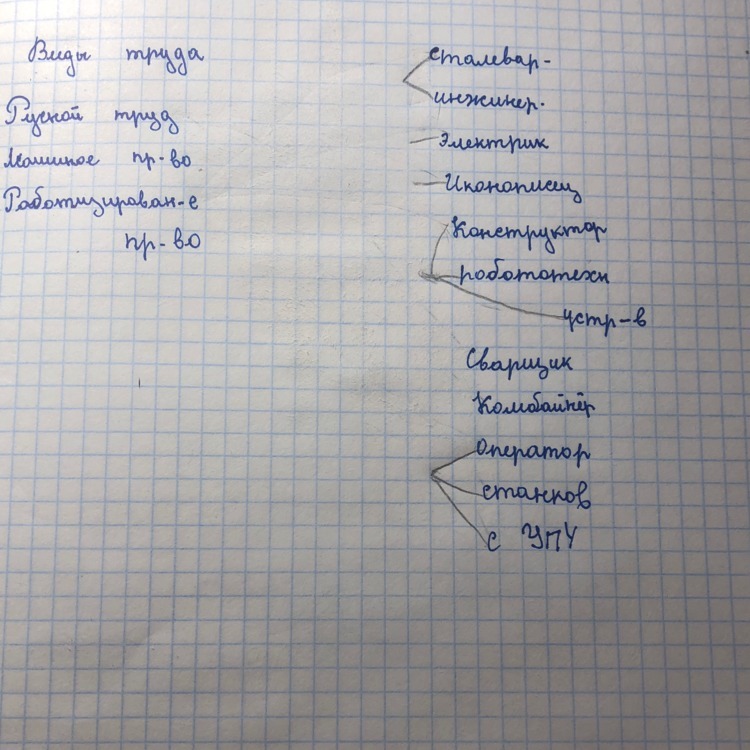 Виды труда
Ручной труд
Машиное пр-во
Роботизирован-е
пр-во
Сталевар-
инжинер.
Электрик
Иконописец
Конструктор
робототехн
устр-в
Сварщик
Комбайнёр
Оператор
станков
с ЧПУ